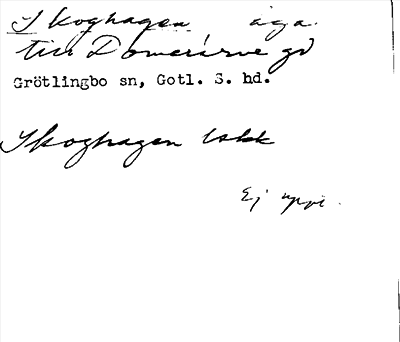 Skoghagen äga.
till Domerarve gd
Grötlingbo sn, Gotl. S. hd.
Skoghagen
Ej uppt.